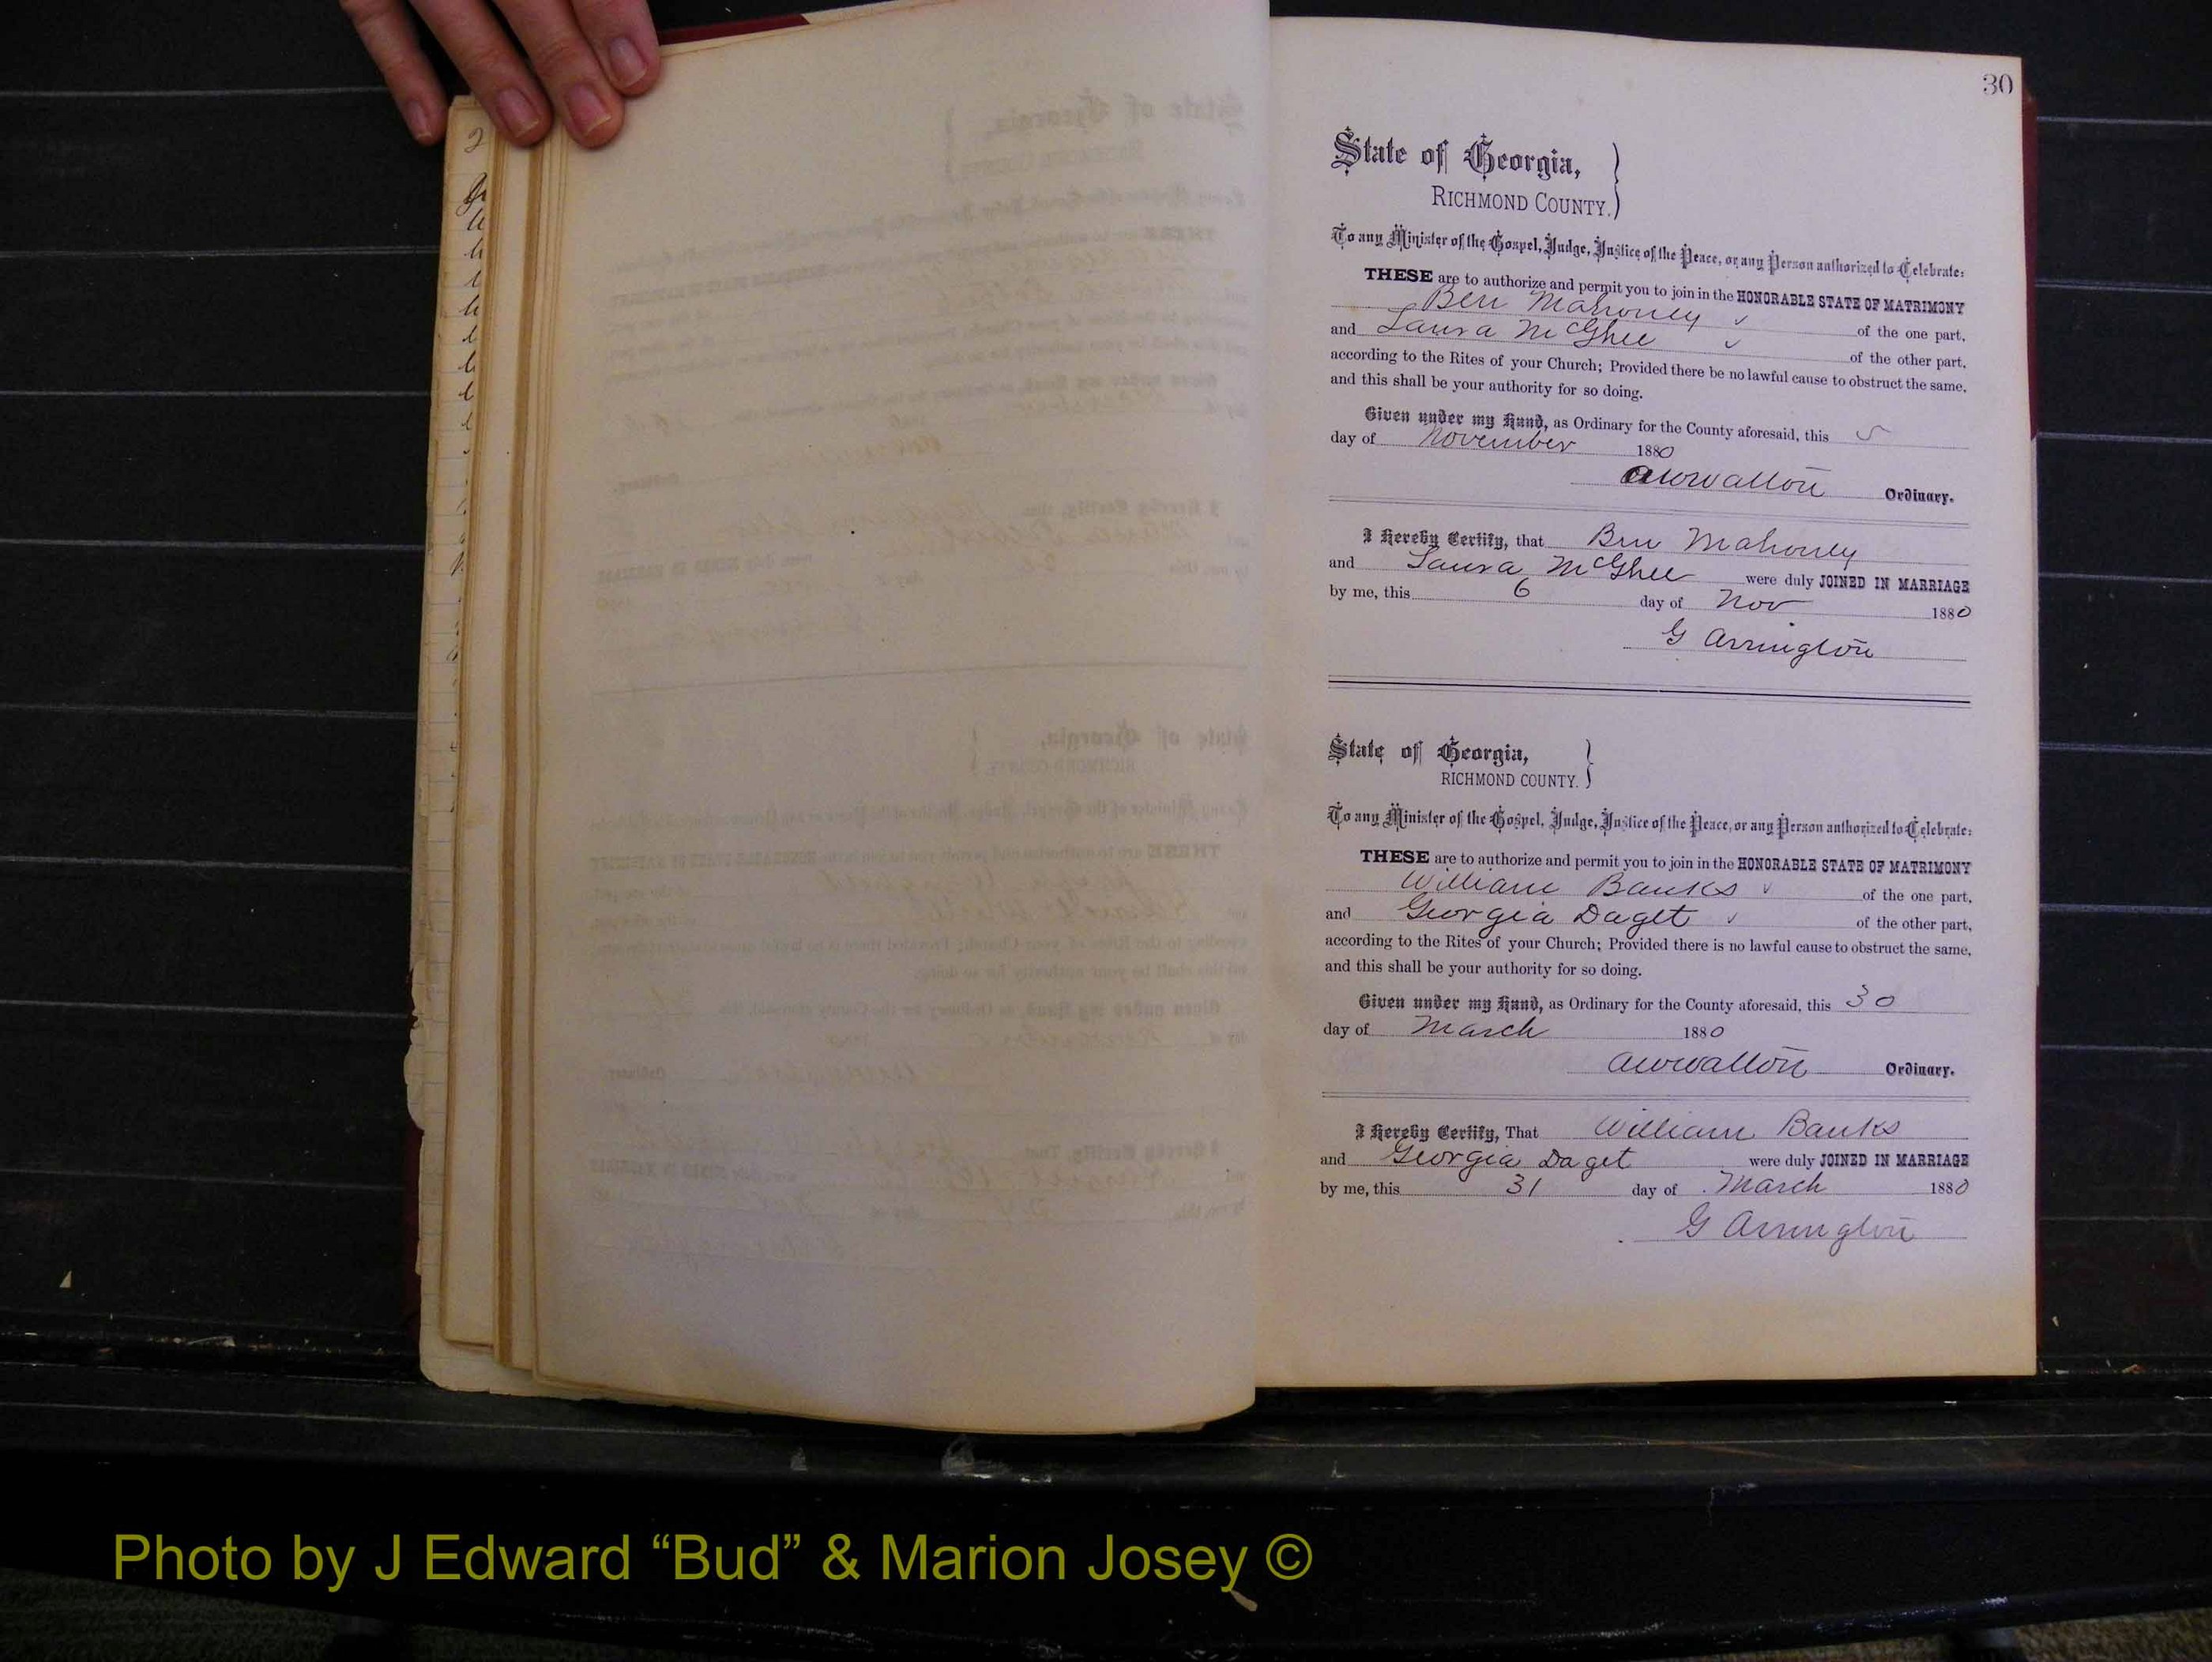 30
State of Georgia,
RICHMOND COUNTY.
To any Minister of the Gospel, Judge, Justice of the Peace, or any Person authorized to Celebrate:
THESE are to authorize and permit you to join in the HONORABLE STATE OF MATRIMONY
Ben Mahoney of the one part,
and Laura McGhee of the other part,
according to the Rites of your Church; Provided there be no lawful cause to obstruct the same,
and this shall be your authority for so doing.
Given under my Hand, as Ordinary for the County aforesaid, this 5
day of November 1880
AWWalton Ordinary.
I Hereby Certify, that Ben Mahoney
and Laura McGhee were duly JOINED IN MARRIAGE
by me, this 6 day of Nov 1880
G Arrington
State of Georgia,
RICHMOND COUNTY.
To any Minister of the Gospel, Judge, Justice of the Peace, or any Person authorized to Celebrate:
THESE are to authorize and permit you to join in the HONORABLE STATE OF MATRIMONY
William Banks of the one part,
and Georgia Daget of the other part,
according to the Rites of your Church; Provided there is no lawful cause to obstruct the same,
and this shall be your authority for so doing.
Given under my Hand, as Ordinary for the County aforesaid, this 30
day of March 1880
AWWalton Ordinary.
I Hereby Certify, That William Banks
and Georgia Daget were duly JOINED IN MARRIAGE
by me, this 31 day of March 1880
G Arrington
Photo by J Edward “Bud” & Marion Josey ©